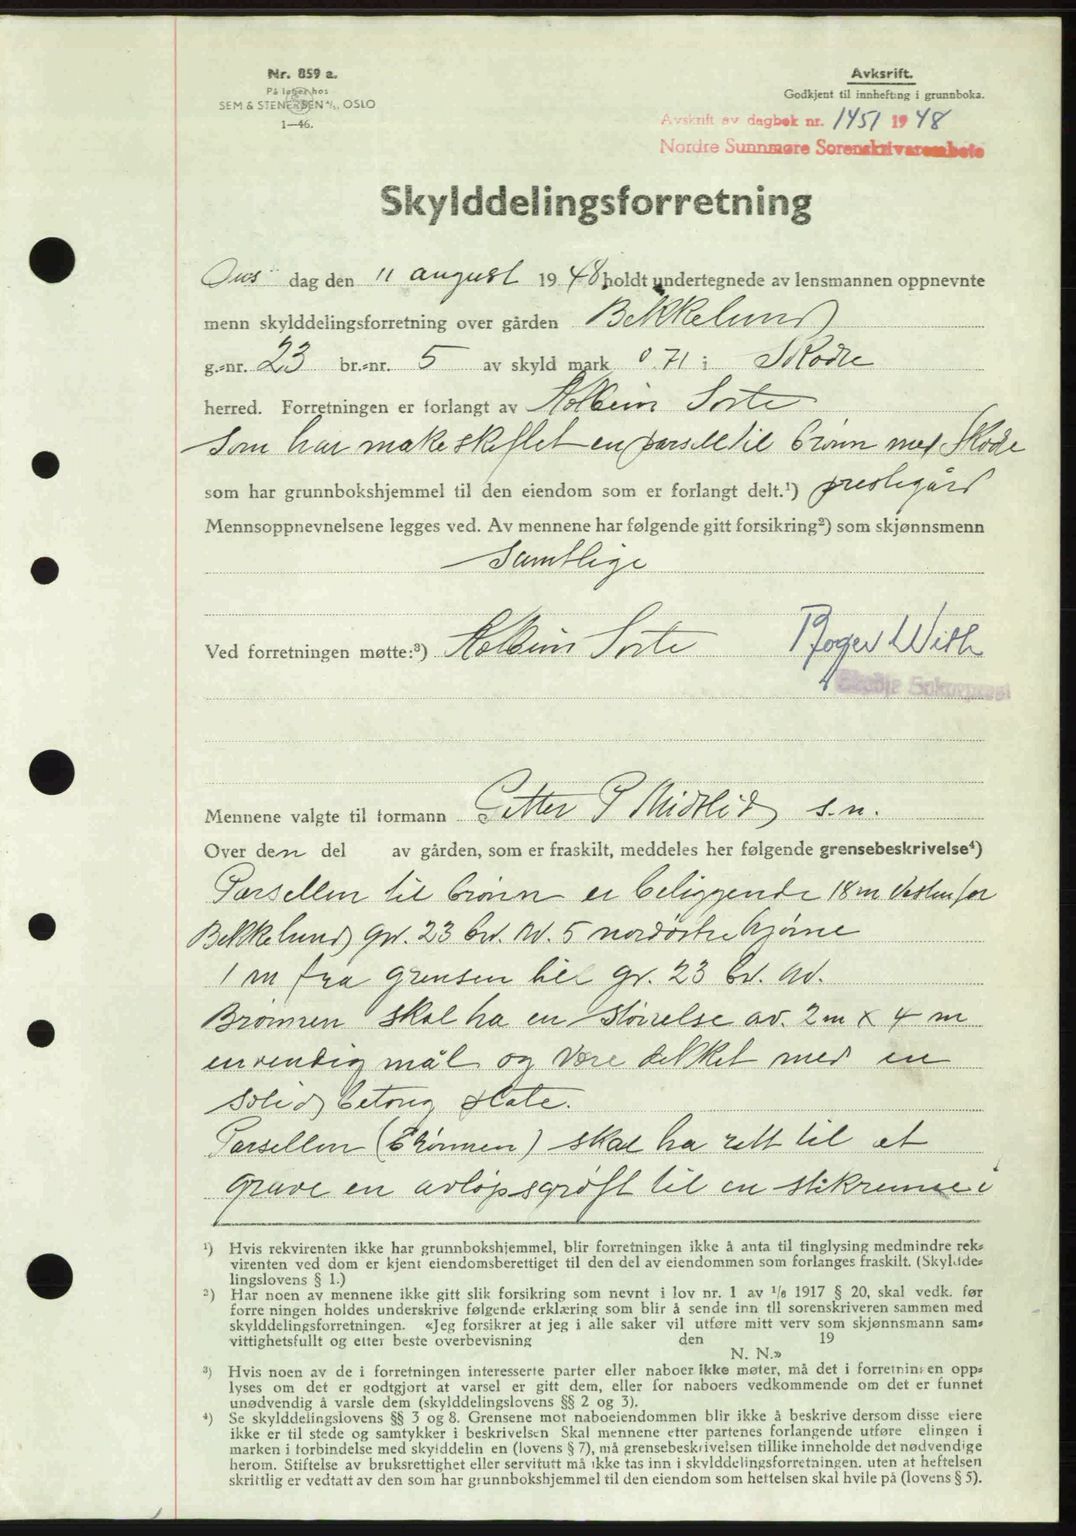 Nr. 859 a.
På lager hos
SEM & STENERSEN A/S, OSLO
1—46.
Avksrift.
Godkjent til innhefting i grunnboka.
Avskrift av dagbok nr. 1451 1948
Nordre Sunnmøre Sorenskrivarembete
Skylddelingsforretning
Ons dag den 11 august 1948 holdt undertegnede av lensmannen oppnevnte
menn skylddelingsforretning over gården Bekkelund
g.-nr. 23 br.-nr. 5 av skyld mark 0.71 i Skodje
herred. Forretningen er forlangt av Kolbein Sorte
som har makeskiftet en parsell til brønn med Skodje
som har grunnbokshjemmel til den eiendom som er forlangt delt.¹) prestegård
Mennsoppnevnelsene legges ved. Av mennene har følgende gitt forsikring²) som skjønnsmenn
samtlige
Ved forretningen møtte:³) Kolbein Sorte Roger With
Skodje Sokneprest
Mennene valgte til formann Petter P Midtlid s.n.
Over den del av gården, som er fraskilt, meddeles her følgende grensebeskrivelse⁴)
Parsellen til brønn er beliggende 18 m vestenfor
Bekkelund gr. 23 br. nr. 5 nordøstre hjørne
1 m fra grensen til gr. 23 br. nr.
Brønnen skal ha en størrelse av 2 m x 4 m
innvendig mål og være dekket med en
solid betong plate.
Parsellen (Brønnen) skal ha rett til at
grave en avløpsgrøft til en stikrenne i
¹) Hvis rekvirenten ikke har grunnbokshjemmel, blir forretningen ikke å anta til tinglysing medmindre rek-
virenten ved dom er kjent eiendomsberettiget til den del av eiendommen som forlanges fraskilt. (Skyldde-
lingslovens § 1.)
²) Har noen av mennene ikke gitt slik forsikring som nevnt i lov nr. 1 av 1/6 1917 § 20, skal vedk. før
forretningen holdes underskrive følgende erklæring som blir å sende inn til sorenskriveren sammen med
skylddelingsforretningen. «Jeg forsikrer at jeg i alle saker vil utføre mitt verv som skjønnsmann sam-
vittighetsfullt og etter beste overbevisning den 19
N. N.»
³) Hvis noen av de i forretningen interesserte parter eller naboer ikke møter, må det i forretningen opp-
lyses om det er godtgjort at varsel er gitt dem, eller for naboers vedkommende om det er funnet
unødvendig å varsle dem (skylddelingslovens §§ 2 og 3).
⁴) Se skylddelingslovens §§ 3 og 8. Grensene mot naboeiendommen blir ikke å beskrive dersom disse eiere
ikke er til stede og samtykker i beskrivelsen Skal mennene etter partenes forlangende utføre elingen i
marken i forbindelse med skylddelin en (lovens § 7), må grensebeskrivelsen tillike inneholde det nødvendige
herom. Stiftelse av bruksrettighet eller servitutt må ikke tas inn i skylddelingsforretningen, uten at heftelsen
skriftlig er vedtatt av den som har grunnbokshjemmel til den eiendom som heftelsen skal hvile på (lovens § 5).